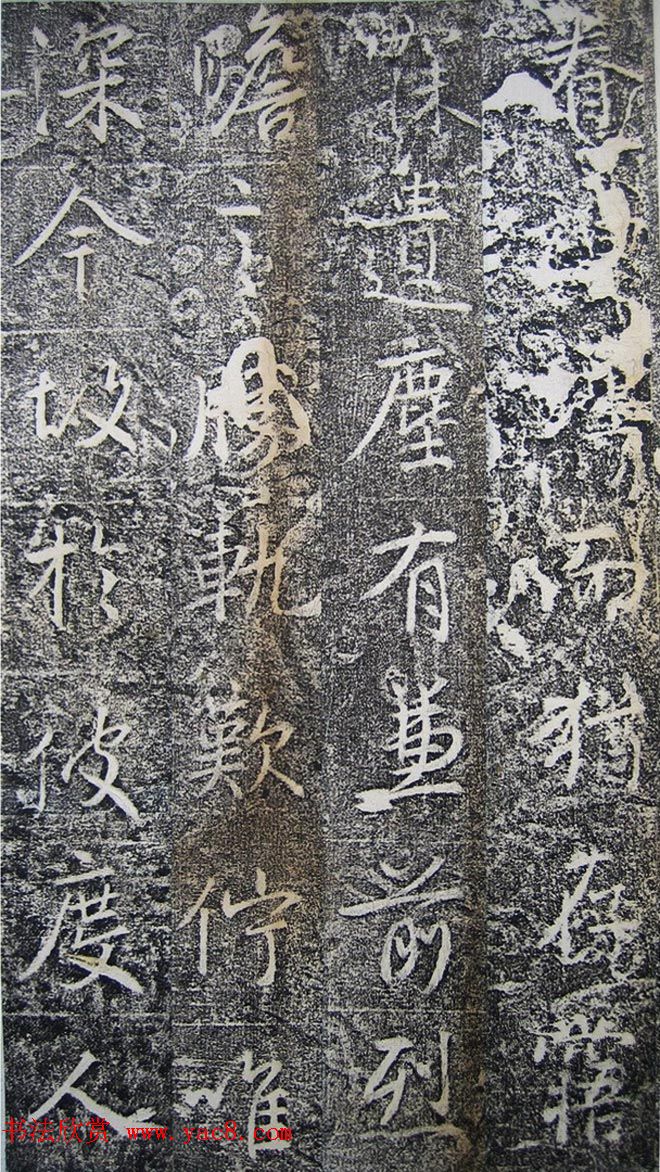 眷而猶存寤
寐遺塵有兼前烈
瞻言勝軌歎佇唯
深今故於彼度人
书法欣赏 www.yac8.com